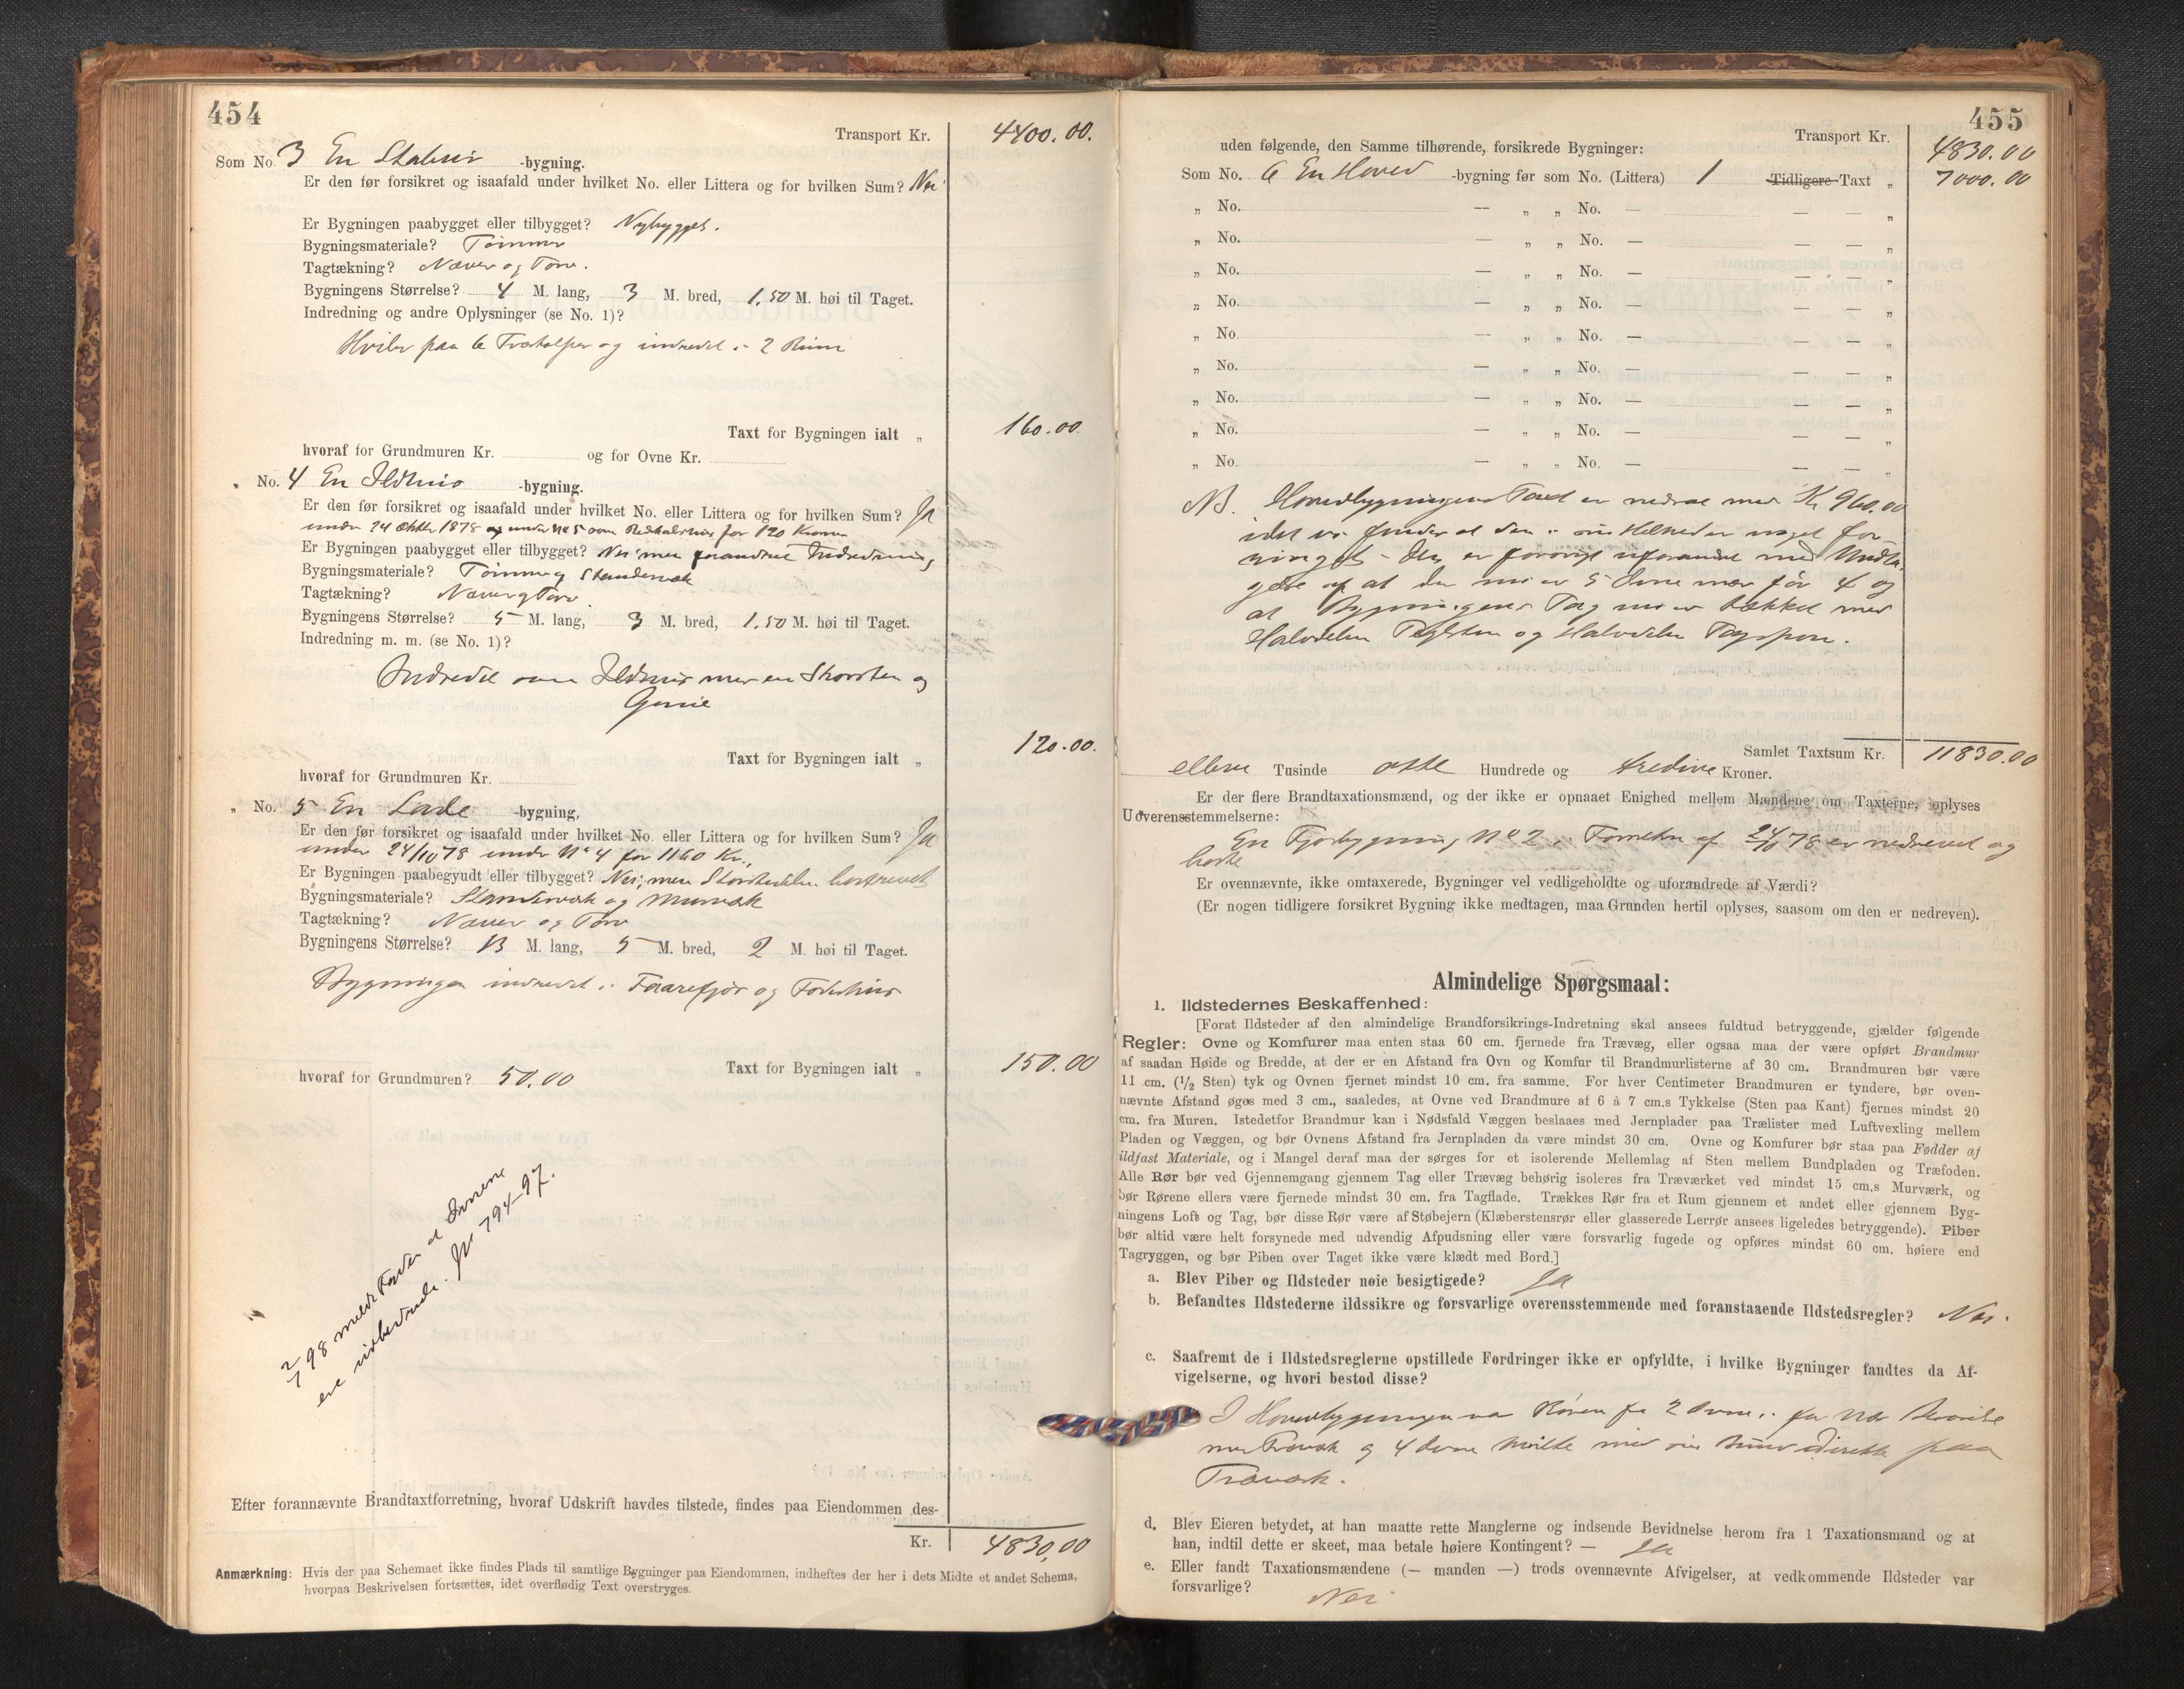 454
Transport Kr. 4400.00.
Som No. 3 En Stabur -bygning.
Er den før forsikret og isaafald under hvilket No. eller Littera og for hvilken Sum? Nei
Er Bygningen paabygget eller tilbygget? Nybygget.
Bygningsmateriale? Tømmer
Tagtækning? Næver og Torv.
Bygningens Størrelse? 4 M. lang, 3 M. bred, 1,50 M. høi til Taget.
Indredning og andre Oplysninger (se No. 1)?
Hviler paa 6 Træstolper og indredet i 2 Rum
Taxt for Bygningen ialt „ 160.00
hvoraf for Grundmuren Kr. og for Ovne Kr.
„ No. 4 En Ildhus -bygning.
Er den før forsikret og isaafald under hvilket No. eller Littera og for hvilken Sum? Ja
under 24 Oktbr 1878 og under No 5 som Redskabshus for 120 Kroner
Er Bygningen paabygget eller tilbygget? Nei men forandret Indredning
Bygningsmateriale? Tømmer og Standerværk
Tagtækning? Næver og Torv.
Bygningens Størrelse? 5 M. lang, 3 M. bred, 1,50 M. høi til Taget.
Indredning m. m. (se No. 1)?
Indredet som Ildhus med en Skorsten og
Grue
Taxt for Bygningen ialt „ 120.00.
hvoraf for Grundmuren Kr.
„ No. 5 En Lade -bygning,
Er den før forsikret og isaafald under hvilket No. eller Littera og for hvilken Sum? Ja
under 24/10 78 under No 4 for 1160 Kr.,
Er Bygningen paabegyndt eller tilbygget? Nei, men Størstedelen bortrevet
Bygningsmateriale? Standerværk og Murværk
Tagtækning? Næver og Torv
Bygningens Størrelse? 13 M. lang, 5 M. bred, 2 M. høi til Taget.
Bygningen indredet i Faarefjøs og Foderhus
Taxt for Bygningen ialt „ 150.00
hvoraf for Grundmuren? 50.00
2/7 98 meldt Foged at Ovnene
ere udbedrede. Jnr 794-97.
Efter forannævnte Brandtaxtforretning, hvoraf Udskrift havdes tilstede, findes paa Eiendommen des-
Kr. 4830,00
Anmærkning: Hvis der paa Schemaet ikke findes Plads til samtlige Bygninger paa Eiendommen, indheftes der her i dets Midte et andet Schema,
hvorpaa Beskrivelsen fortsættes, idet overflødig Text overstryges.
455
Transport Kr. 4830.00
uden følgende, den Samme tilhørende, forsikrede Bygninger:
Som No. 6 En Hoved -bygning før som No. (Littera) 1 Tidligere Taxt „ 7000.00
„ No. — „ „ No. — — — „
„ No. — „ „ No. — — — „
„ No. — „ „ No. — — — „
„ No. — „ „ No. — — — „
„ No. — „ „ No. — — — „
„ No. — „ „ No. — — — „
„ No. — „ „ No. — — — „
„ No. — „ „ No. — — — „
„ No. — „ „ No. — — — „
NB. Hovedbygningens Taxt er nedsat med Kr 960.00
idet vi finder at den i sin Helhed er noget for-
ringet - Den er forøvrigt uforandret med Undta-
gelse af at der nu er 5 Ovne mod før 4 og
at Bygningens Tag nu er tækket med
Halvdelen Taglsten og Halvdelen Tagspon.
Samlet Taxtsum Kr. 11830.00
elleve Tusinde otte Hundrede og tredive Kroner.
Er der flere Brandtaxationsmænd, og der ikke er opnaaet Enighed mellem Mændene om Taxterne, oplyses
Uoverensstemmelserne:
En Fjøsbygning No 2 i Forretn af 24/10 78 er nedrevet og
borte
Er ovennævnte, ikke omtaxerede, Bygninger vel vedligeholdte og uforandrede af Værdi?
(Er nogen tidligere forsikret Bygning ikke medtagen, maa Grunden hertil oplyses, saasom om den er nedreven).
Almindelige Spørgsmaal:
1. Ildstedernes Beskaffenhed:
[Forat Ildsteder af den almindelige Brandforsikrings-Indretning skal ansees fuldtud betryggende, gjælder følgende
Regler: Ovne og Komfurer maa enten staa 60 cm. fjernede fra Trævæg, eller ogsaa maa der være opført Brandmur
af saadan Høide og Bredde, at der er en Afstand fra Ovn og Komfur til Brandmurlisterne af 30 cm. Brandmuren bør være
11 cm. (½ Sten) tyk og Ovnen fjernet mindst 10 cm. fra samme. For hver Centimeter Brandmuren er tyndere, bør oven-
nævnte Afstand øges med 3 cm., saaledes, at Ovne ved Brandmure af 6 à 7 cm.s Tykkelse (Sten paa Kant) fjernes mindst 20
cm. fra Muren. Istedetfor Brandmur kan i Nødsfald Væggen beslaaes med Jernplader paa Trælister med Luftvexling mellem
Pladen og Væggen, og bør Ovnens Afstand fra Jernpladen da være mindst 30 cm. Ovne og Komfurer bør staa paa Fødder af
ildfast Materiale, og i Mangel deraf maa der sørges for et isolerende Mellemlag af Sten mellem Bundpladen og Træfoden.
Alle Rør bør ved Gjennemgang gjennem Tag eller Trævæg behørig isoleres fra Træværket ved mindst 15 cm.s Murværk, og
bør Rørene ellers være fjernede mindst 30 cm. fra Tagflade. Trækkes Rør fra et Rum gjennem et andet eller gjennem Byg-
ningens Loft og Tag, bør disse Rør være af Støbejern (Klæberstensrør eller glasserede Lerrør ansees ligeledes betryggende). Piber
bør altid være helt forsynede med udvendig Afpudsning eller være forsvarlig fugede og opføres mindst 60 cm. høiere end
Tagryggen, og bør Piben over Taget ikke være klædt med Bord.]
a. Blev Piber og Ildsteder nøie besigtigede? Ja
b. Befandtes Ildstederne ildssikre og forsvarlige overensstemmende med foranstaaende Ildstedsregler? Nei.
c. Saafremt de i Ildstedsreglerne opstillede Fordringer ikke er opfyldte, i hvilke Bygninger fandtes da Af-
vigelserne, og hvori bestod disse?
I Hovedbygningen var Rørene fra 2 Ovne i for nær Berørelse
med Træværk og 4 Ovne hvilte med sin Bund direkte paa
Træværk.
d. Blev Eieren betydet, at han maatte rette Manglerne og indsende Bevidnelse herom fra 1 Taxationsmand og at
han, indtil dette er skeet, maa betale høiere Kontingent? — Ja
e. Eller fandt Taxationsmændene (— manden —) trods ovennævnte Afvigelser, at vedkommende Ildsteder var
forsvarlige? Nei